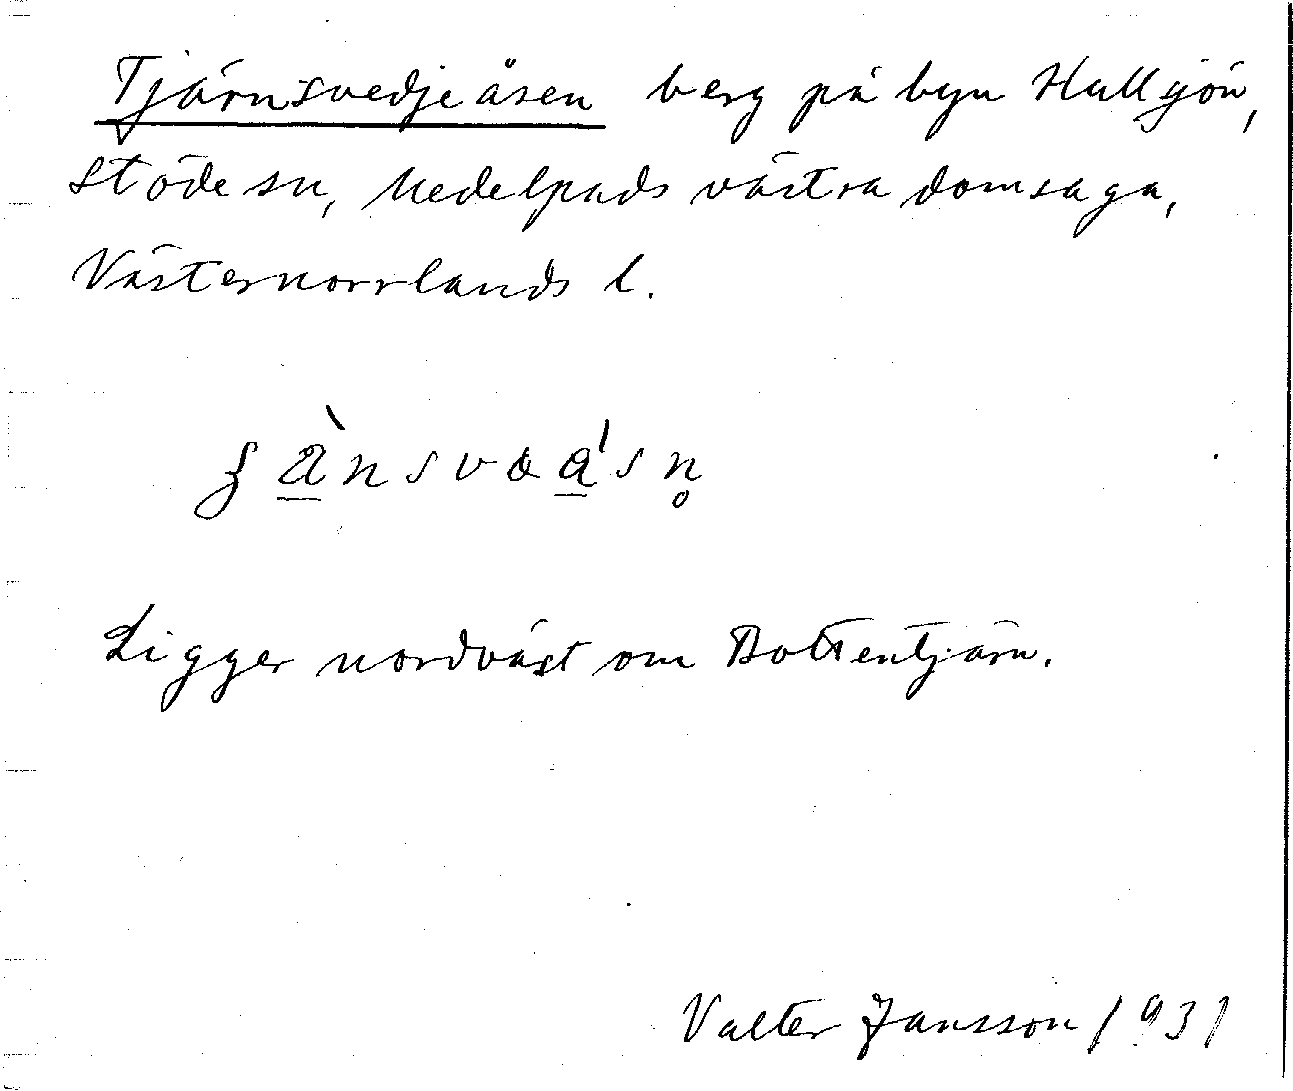 Tjärnsvedjeåsen berg på byn Hullsjön,
Stöde sn, Medelpads västra domsaga,
Västernorrlands l.
Ligger nordväst om Bottentjärn.
Valter Jansson 1931